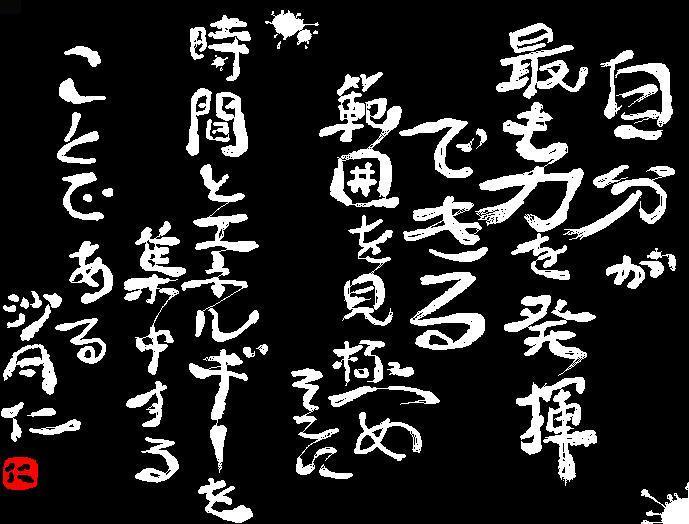 自分が
最も力を発揮
できる
範囲を見極め
そこに
時間とエネルギーを
集中する
ことである
沙月仁
仁